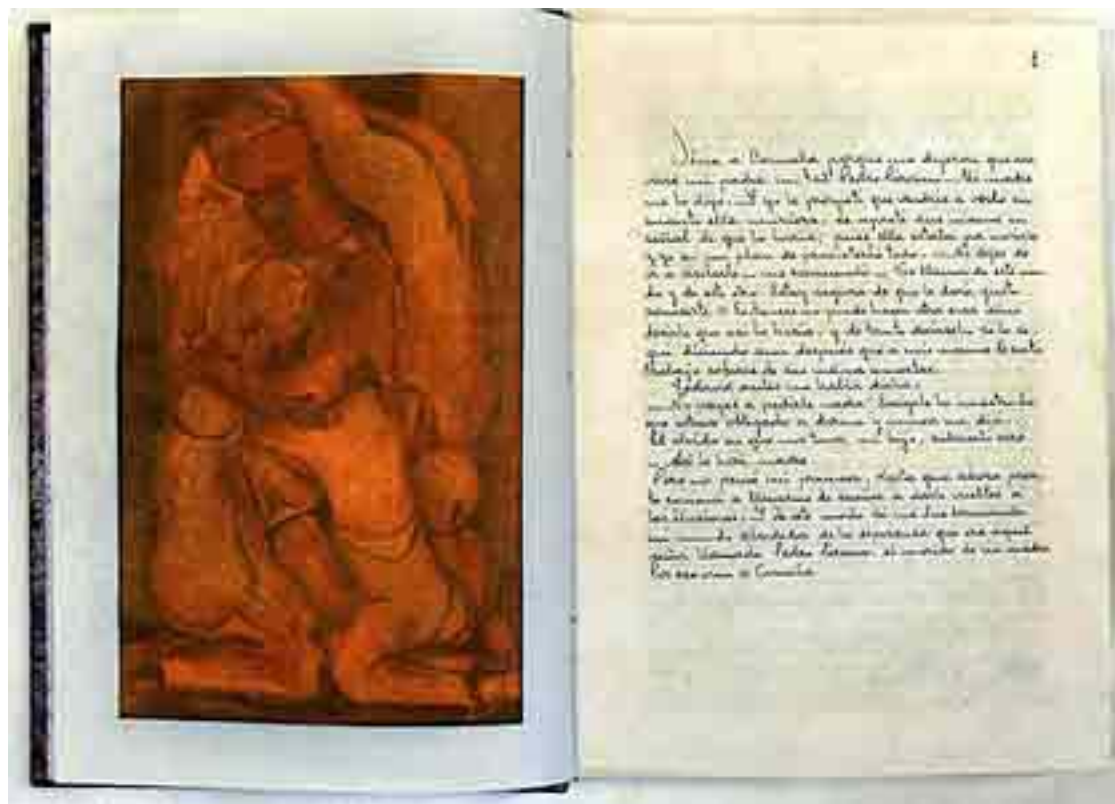 Vine a Comala porque me dijeron que acá
vivía mi padre, un tal Pedro Páramo. Mi madre
me lo dijo. Y yo le prometí que vendría a verlo en
cuanto ella muriera. Le apreté sus manos en
señal de que lo haría; pues ella estaba por morirse
y yo en un plan de prometerlo todo. —No dejes de
ir a visitarlo —me recomendó—. Se llama de este mo
do y de este otro. Estoy segura de que le dará gusto
conocerte. Entonces no pude hacer otra cosa sino
decirle que así lo haría, y de tanto decírselo se lo se
guí diciendo aun después que a mis manos les costó
trabajo zafarse de sus manos muertas.
Todavía antes me había dicho:
—No vayas a pedirle nada. Exígele lo nuestro. Lo
que estuvo obligado a darme y nunca me dio.
El olvido en que nos tuvo, mi hijo, cóbraselo caro
—Así lo haré, madre.
Pero no pensé mi promesa, hasta que ahora pron
to comencé a llenarme de sueños a darle vuelo a
las ilusiones. Y de este modo se me fue
un mundo alrededor de la esperanza que era aquel
señor llamado Pedro Páramo, el marido de mi madre
Por eso vine a Comala